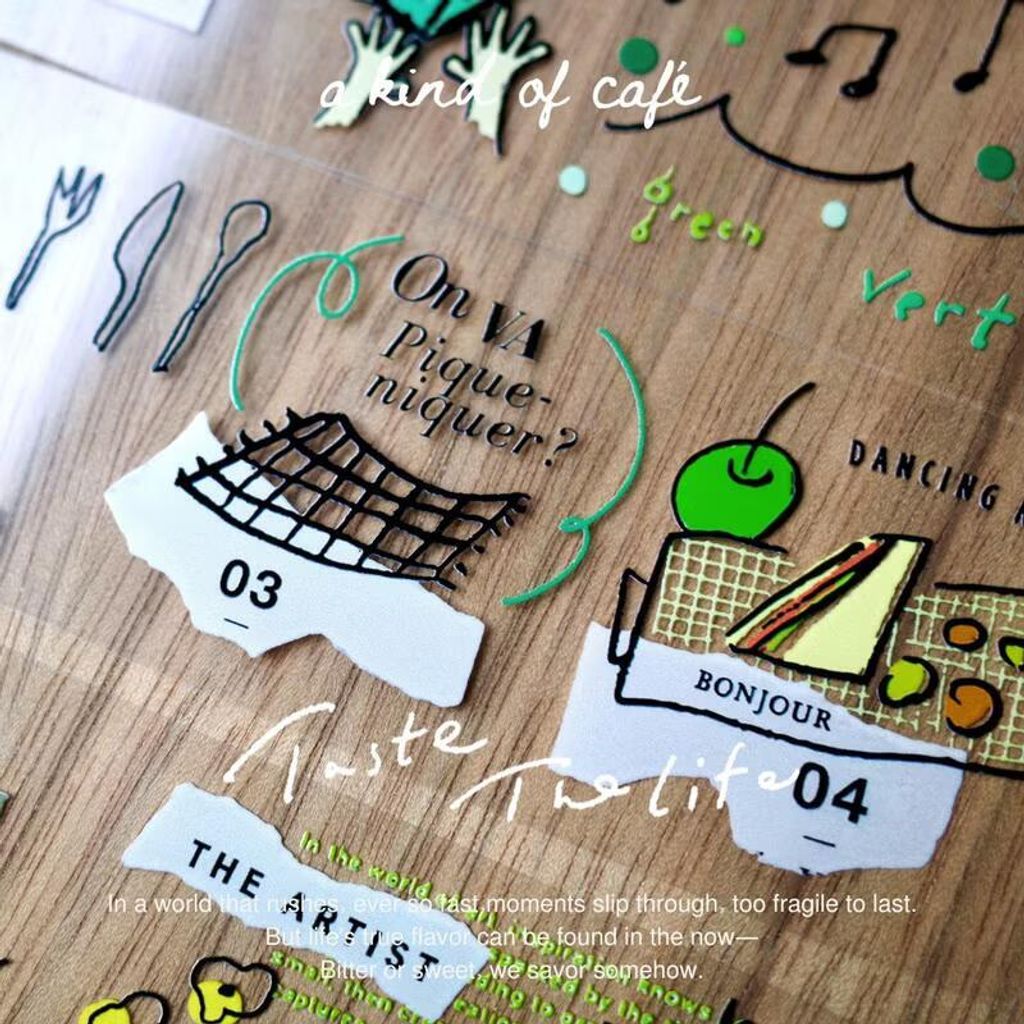 a kind of café
green
vert
On VA
Pique-
niquer?
DANCING
03
BONJOUR
Taste
The life
04
THE ARTIST
In the world
In a world that rushes, ever so fast, moments slip through, too fragile to last.
But life's true flavor can be found in the now—
Bitter or sweet, we savor somehow.
knows
by the
small, then